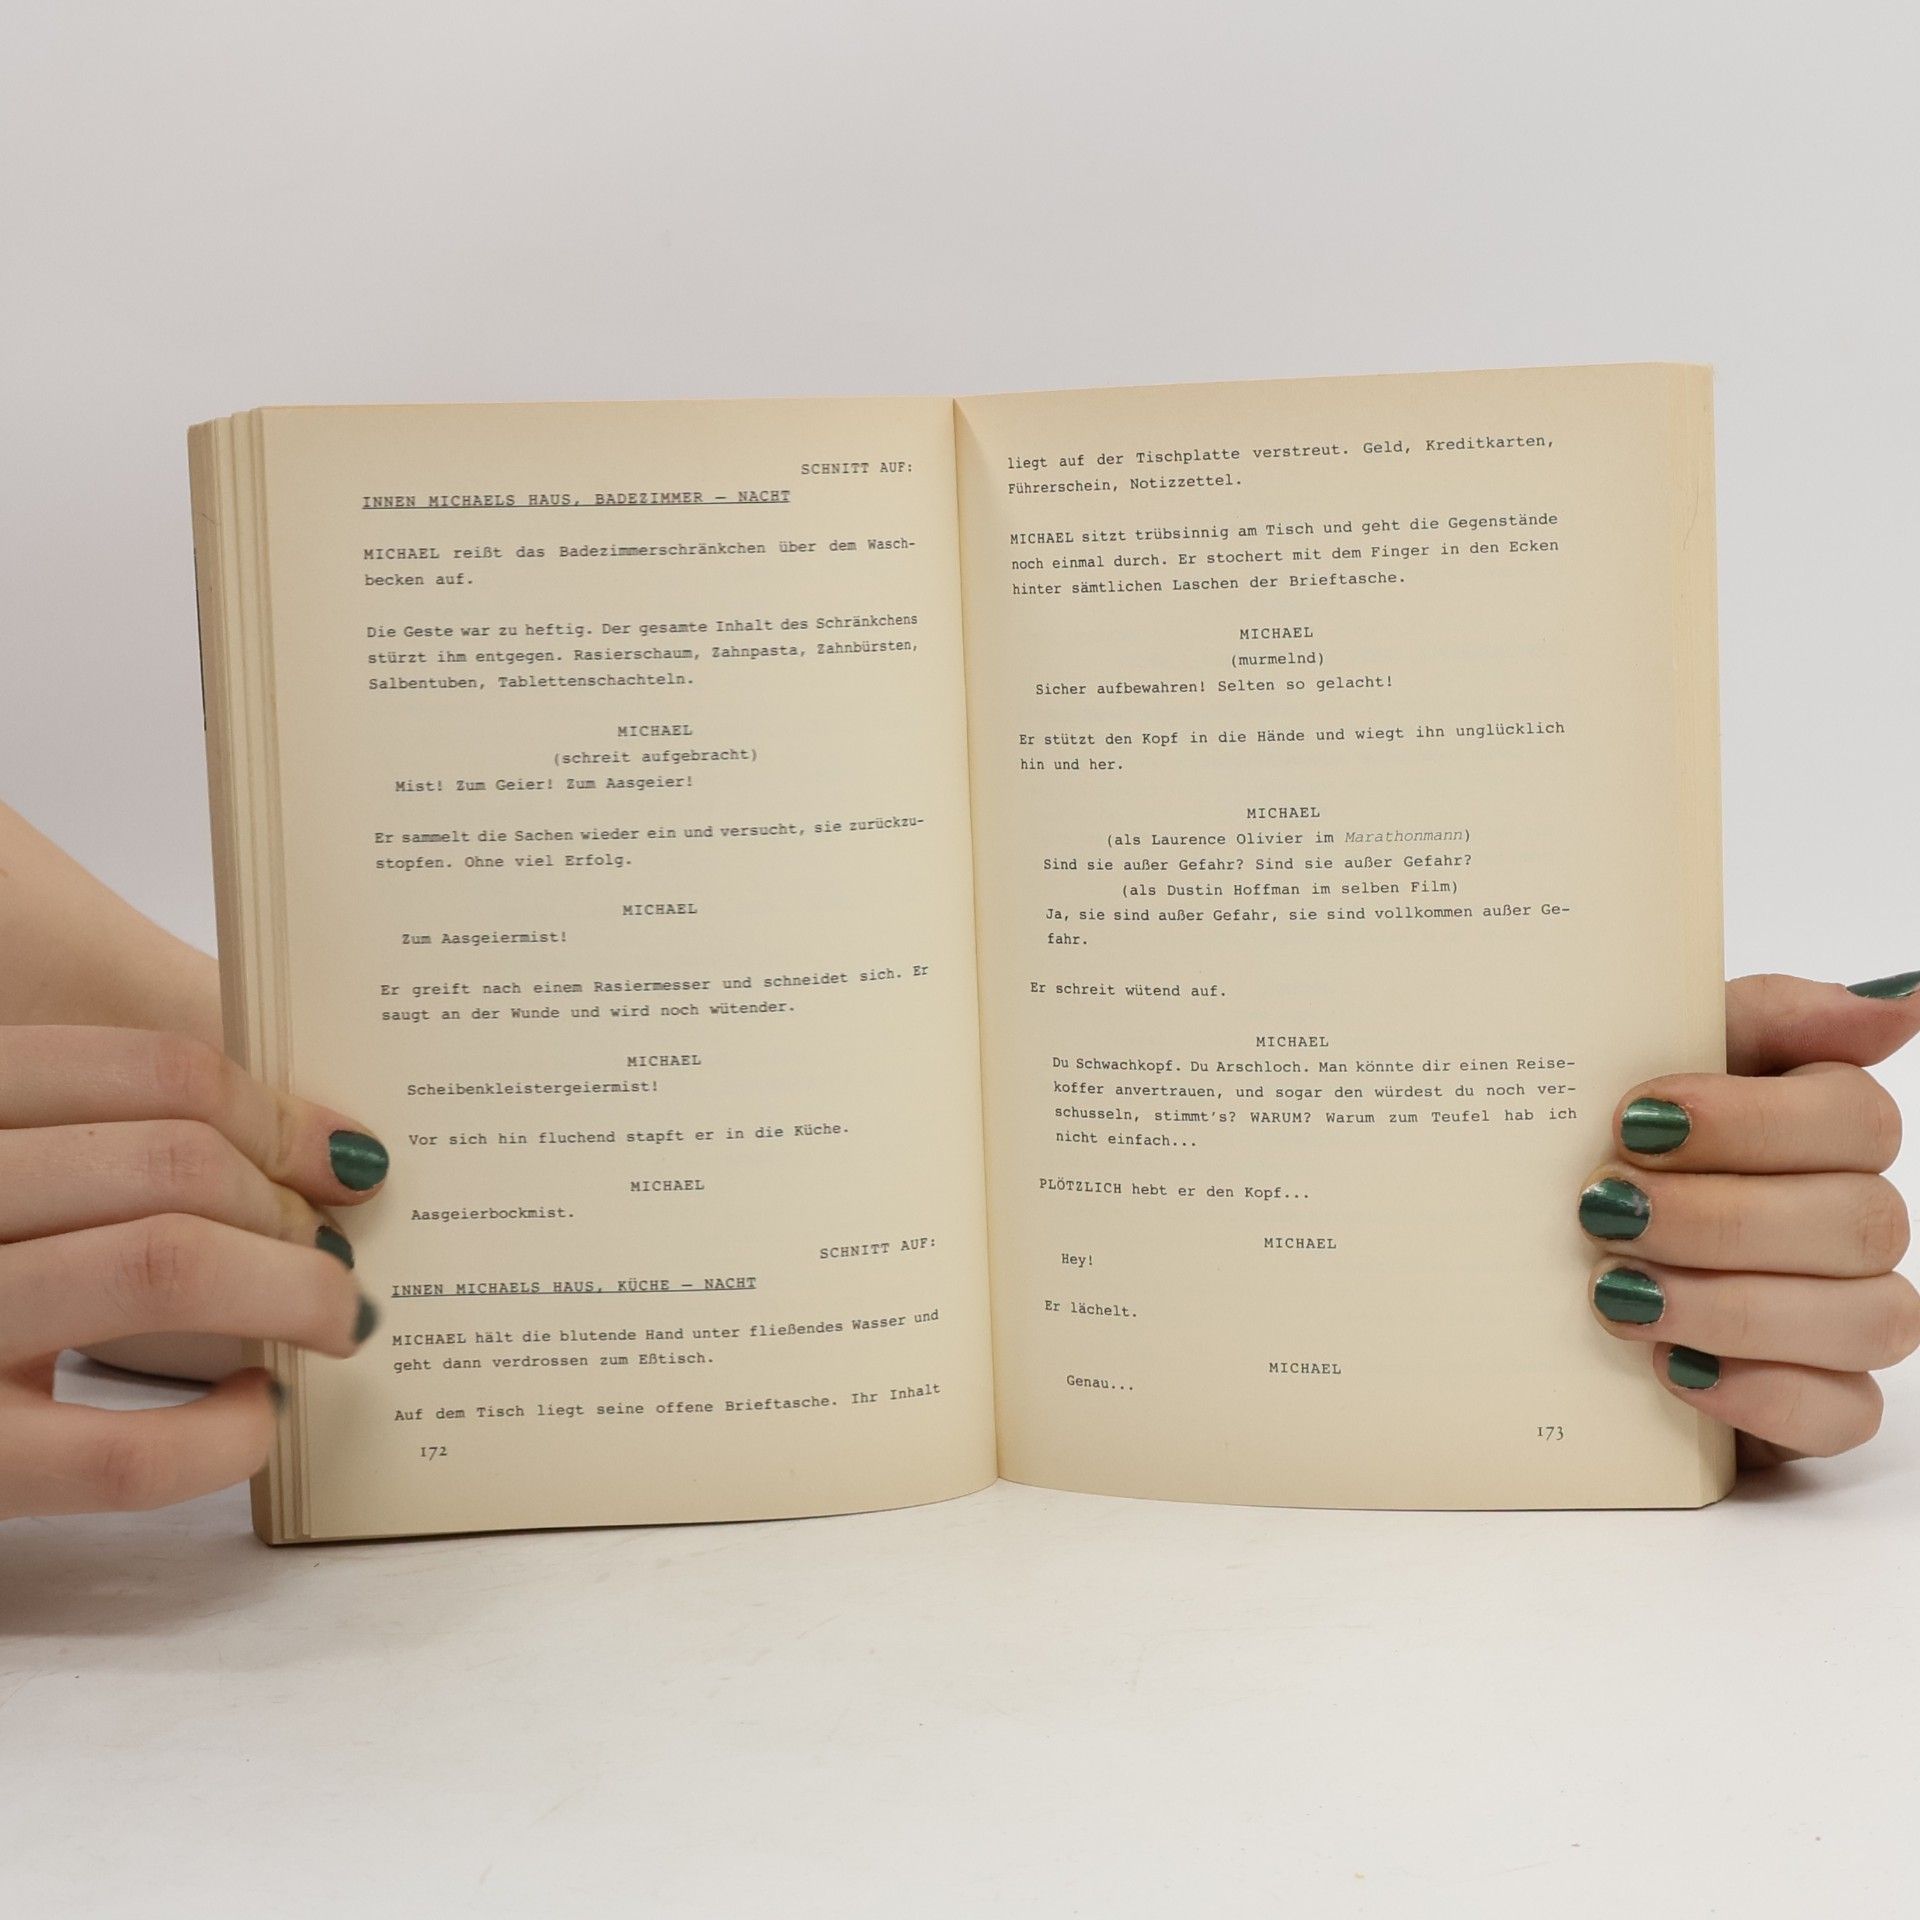 SCHNITT AUF:
INNEN MICHAELS HAUS, BADEZIMMER — NACHT
MICHAEL reißt das Badezimmerschränkchen über dem Wasch-
becken auf.
Die Geste war zu heftig. Der gesamte Inhalt des Schränkchens
stürzt ihm entgegen. Rasierschaum, Zahnpasta, Zahnbürsten,
Salbentuben, Tablettenschachteln.
MICHAEL
(schreit aufgebracht)
Mist! Zum Geier! Zum Aasgeier!
Er sammelt die Sachen wieder ein und versucht, sie zurückzu-
stopfen. Ohne viel Erfolg.
MICHAEL
Zum Aasgeiermist!
Er greift nach einem Rasiermesser und schneidet sich. Er
saugt an der Wunde und wird noch wütender.
MICHAEL
Scheibenkleistergeiermist!
Vor sich hin fluchend stapft er in die Küche.
MICHAEL
Aasgeierbockmist.
SCHNITT AUF:
INNEN MICHAELS HAUS, KÜCHE — NACHT
MICHAEL hält die blutende Hand unter fließendes Wasser und
geht dann verdrossen zum Eßtisch.
Auf dem Tisch liegt seine offene Brieftasche. Ihr Inhalt
172
liegt auf der Tischplatte verstreut. Geld, Kreditkarten,
Führerschein, Notizzettel.
MICHAEL sitzt trübsinnig am Tisch und geht die Gegenstände
noch einmal durch. Er stochert mit dem Finger in den Ecken
hinter sämtlichen Laschen der Brieftasche.
MICHAEL
(murmelnd)
Sicher aufbewahren! Selten so gelacht!
Er stützt den Kopf in die Hände und wiegt ihn unglücklich
hin und her.
MICHAEL
(als Laurence Olivier im Marathonmann)
Sind sie außer Gefahr? Sind sie außer Gefahr?
(als Dustin Hoffman im selben Film)
Ja, sie sind außer Gefahr, sie sind vollkommen außer Ge-
fahr.
Er schreit wütend auf.
MICHAEL
Du Schwachkopf. Du Arschloch. Man könnte dir einen Reise-
koffer anvertrauen, und sogar den würdest du noch ver-
schusseln, stimmt's? WARUM? Warum zum Teufel hab ich
nicht einfach...
PLÖTZLICH hebt er den Kopf...
MICHAEL
Hey!
Er lächelt.
MICHAEL
Genau...
173